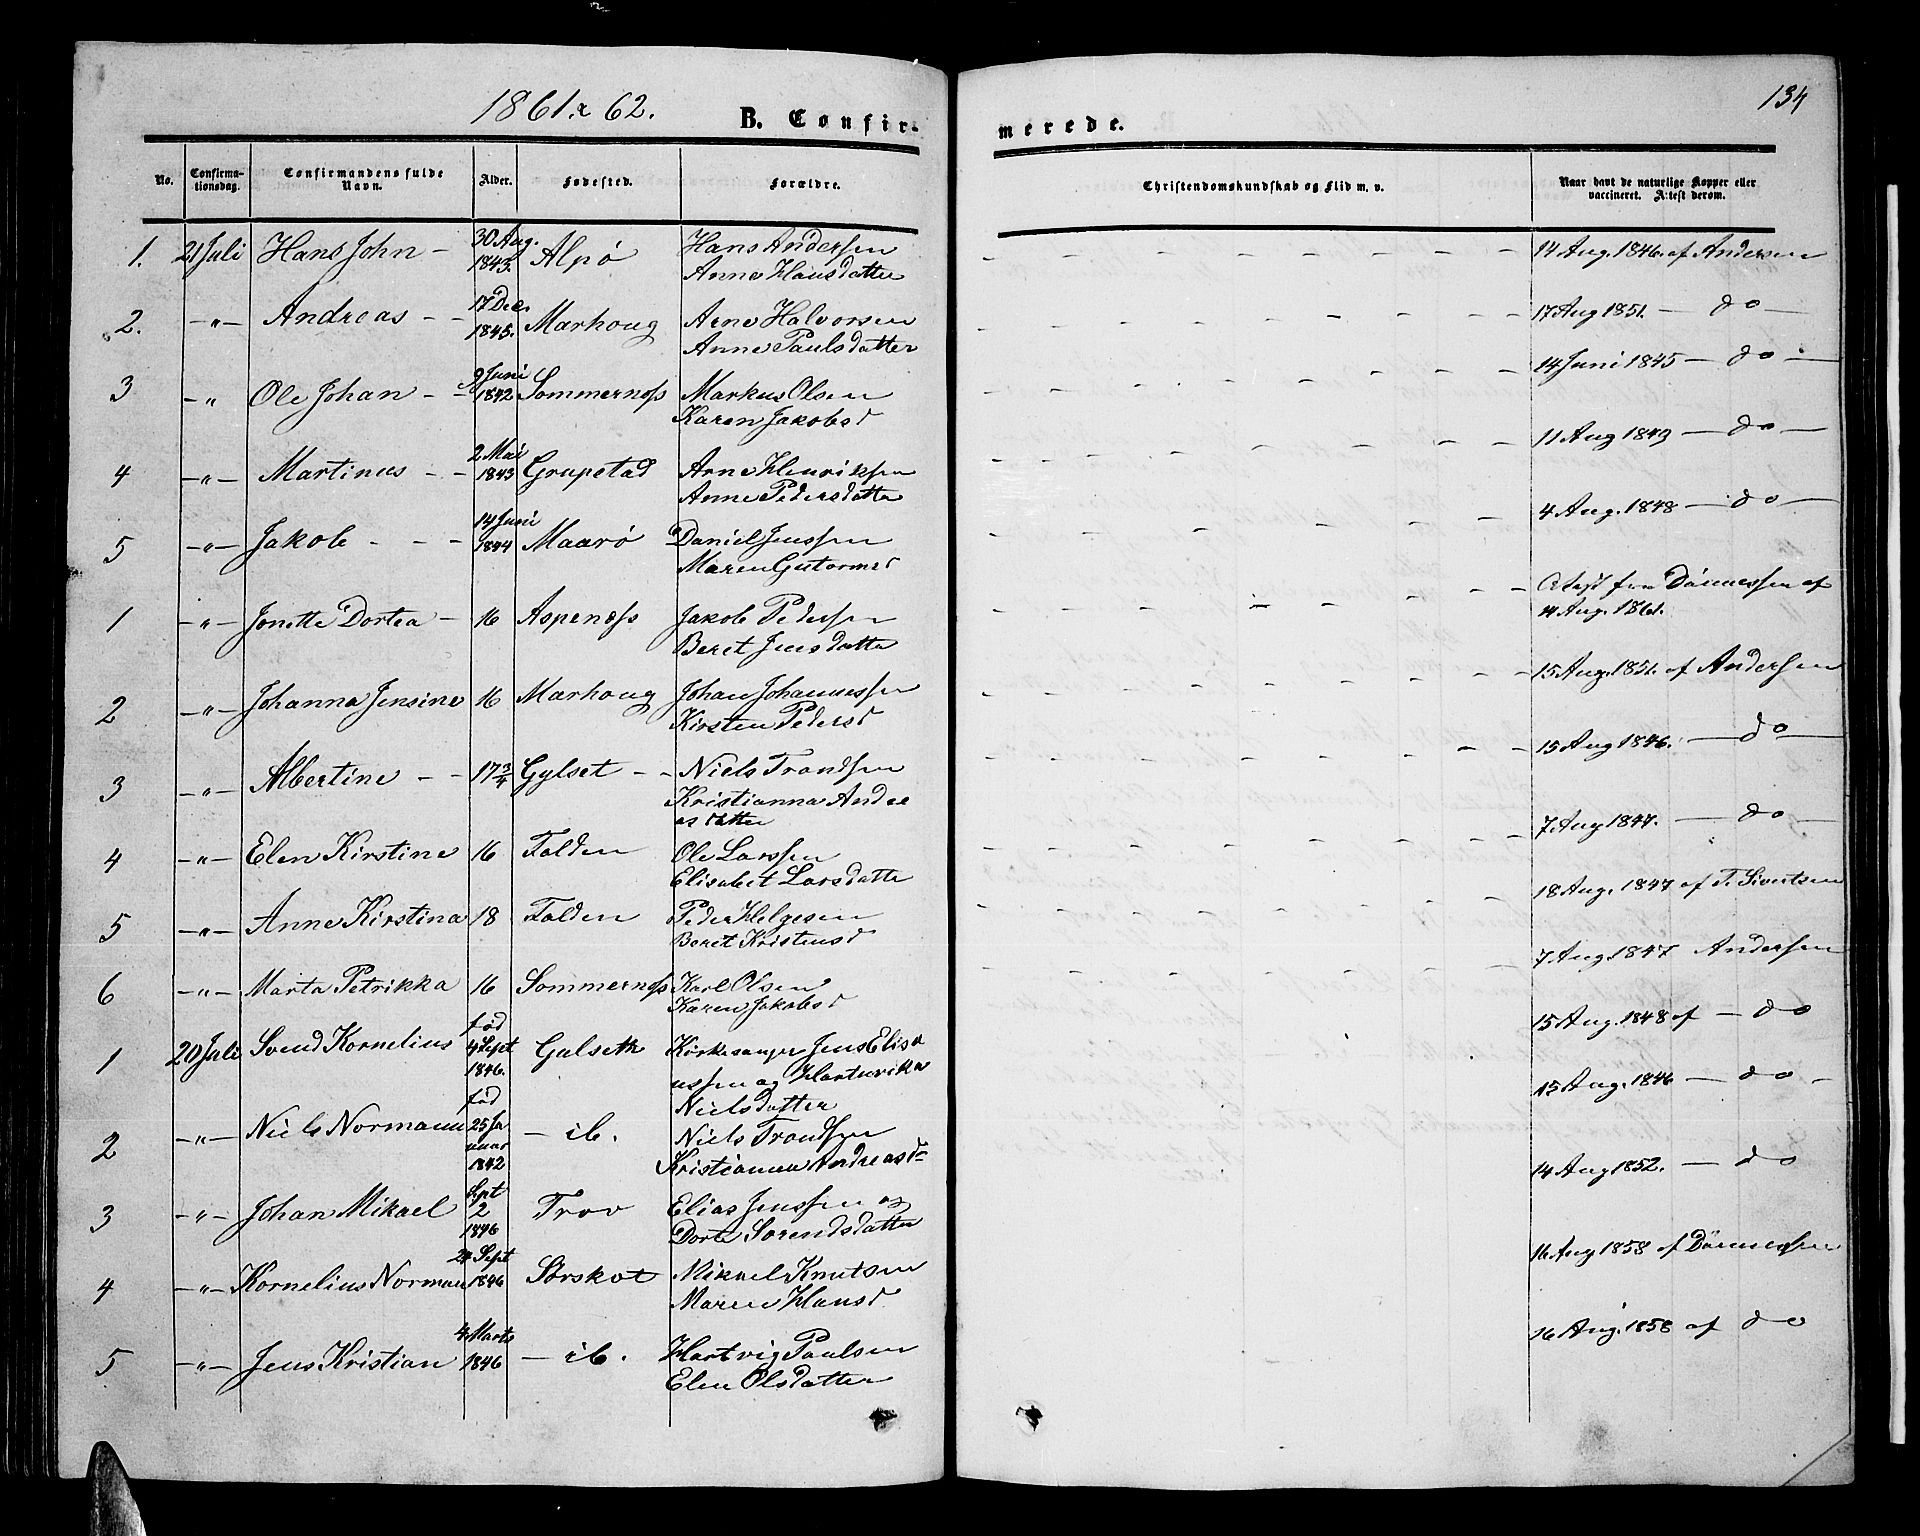 1861 & 62.
B. Confir-
merede.
134
No.
Confirma-
tionsdag.
Confirmandens fulde
Navn.
Alder.
Fødested.
Forældre.
Christendomskundskab og Flid m. v.
Naar havt de naturlige Kopper eller
vaccineret. Attest derom.
1. 21 Juli Hans John - 30 Aug. 1843. Alpø Hans Andersen - - - 14 Aug. 1846. af Andersen
Anne Hansdatter
2. -"- Andreas - - 17 Dec. 1845. Marhoug Arne Halvorsen - - - 17 Aug 1851. - do -
Anne Paulsdatter
3 -" Ole Johan - - 9 Juni 1842 Sommernæss Markus Olsen - - - 14 Juni 1845 - do -
Karen Jakobsd
4 -"- Martinus - - 2 Mai 1843 Grupstad Arne Henriksen - - - 11 Aug 1849 - do -
Anne Pedersdatter
5 -"- Jakob - - - 14 Juni 1844 Maarø Daniel Jenssen - - - 4 Aug. 1848 - do -
Maren Gutormsd
1 -"- Jonette Dortea - 16 Aspenæss Jakob Pedersen - - - Attest fra Dønnessen af
Beret Jensdatter 14 Aug. 1861.
2 -"- Johanna Jensine 16 Marhoug Johan Johannessen - - - 15 Aug. 1851. af Andersen
Kirsten Pedersd
3 -"- Albertine - - 17 3/4 Gylset - - Niels Trondsen - - - 15 Aug 1846. - do -
Kristianna Andre
asdatter
4 -"- Elen Kirstine 16 Folden Ole Larssen - - - 7 Aug 1847. - do -
Elisabet Larsdatter
5 -"- Anne Kirstina 18 Folden Peder Helgesen - - - 18 Aug. 1847 af T. Sivertsen
Beret Kristensd
6 -"- Marta Petrikka 16 Sommernæss Karl Olsen - - - 7 Aug. 1847 Andersen
Karen Jakobsd
1 20 Juli Svend Kornelius fød 4 Sept 1846. Gulseth Kirkesanger Jens Elisæ 15 Aug. 1848 af - do
ussen og Hartvrika
Nielsdatter
2 -"- Niels Normann fød 25 Januar 1842 - ib. Niels Trondsen 15 Aug. 1846 - do -
Kristianna Andreasd
3 -"- Johan Mikael Sept 2 1846 Trov Elias Jenssen og 14 Aug 1852. - do
Dorte Sorendsdatter
4 -"- Kornelius Norman 24 Sept 1846 Sørskot Mikael Knutsen 16 Aug 1858 af Dønnessen
Maren Hansd
5 -"- Jens Kristian 4 Marts 1846 - ib. Hartvig Paulsen 16 Aug. 1858 af do
Elen Olsdatter